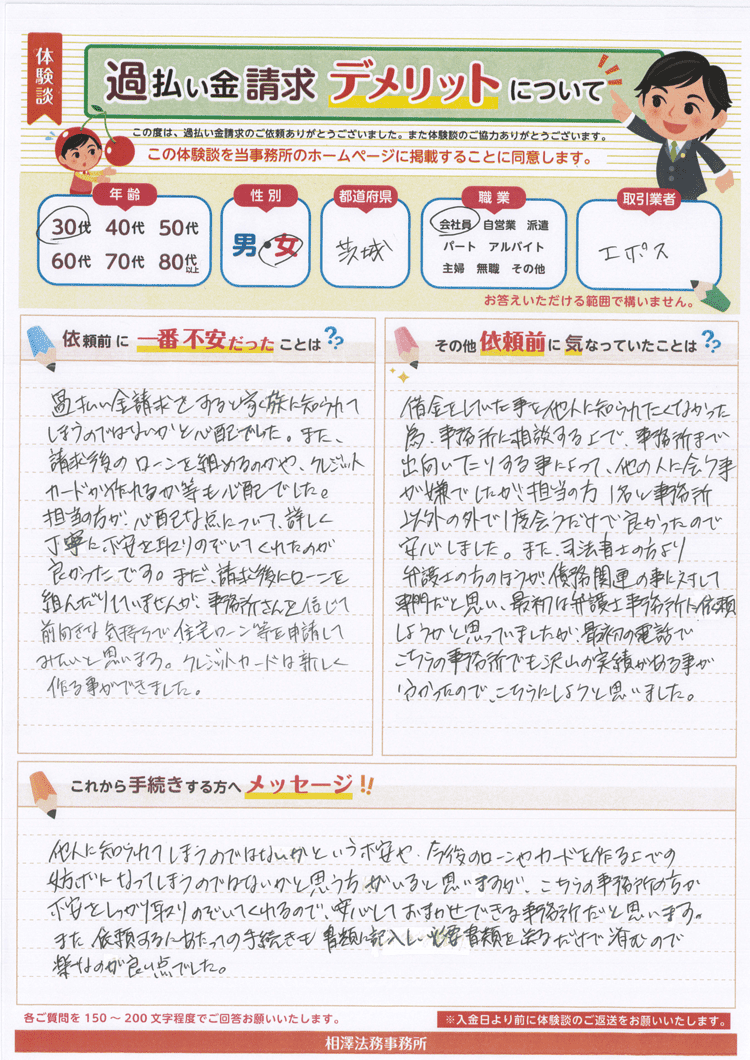 体験談
過払い金請求 デメリットについて
この度は、過払い金請求のご依頼ありがとうございました。また体験談のご協力ありがとうございます。
この体験談を当事務所のホームページに掲載することに同意します。
年齢
30代 40代 50代
60代 70代 80代以上
性別
男・女
都道府県
茨城
職業
会社員 自営業 派遣
パート アルバイト
主婦 無職 その他
取引業者
エポス
お答えいただける範囲で構いません。
依頼前に一番不安だったことは??
過払い金請求をすると家族に知られて
しまうのではないかと心配でした。また、
請求後のローンを組めるのかや、クレジット
カードが作れるか等も心配でした。
担当の方が、心配な点について、詳しく
丁寧に不安を取りのぞいてくれたのが
良かったです。まだ、請求後にローンを
組んだりしていませんが、事務所さんを信じて
前向きな気持ちで住宅ローン等を申請して
みたいと思います。クレジットカードは新しく
作る事ができました。
その他依頼前に気なっていたことは??
借金をしていた事を他人に知られたくなかった
為、事務所に相談する上で、事務所まで
出向いたりする事によって、他の人に会う事
が嫌でしたが、担当の方1名と事務所
以外の外で1度会うだけで良かったので
安心しました。また、司法書士の方より
弁護士の方のほうが債務関連の事に対して
専門だと思い、最初は弁護士事務所に依頼
しようかと思っていましたが、最初の電話で
こちらの事務所でも沢山の実績がある事が
分かったので、こちらにしようと思いました。
これから手続きする方へメッセージ!!
他人に知られてしまうのではないかという不安や、今後のローンやカードを作る上での
妨げになってしまうのではないかと思う方がいると思いますが、こちらの事務所の方が
不安をしっかり取りのぞいてくれるので、安心しておまかせできる事務所だと思います。
また依頼するにあたっての手続きも書類に記入し、必要書類を送るだけで済むので
楽なのが良い点でした。
各ご質問を150~200文字程度でご回答お願いいたします。
※入金日より前に体験談のご返送をお願いいたします。
相澤法務事務所